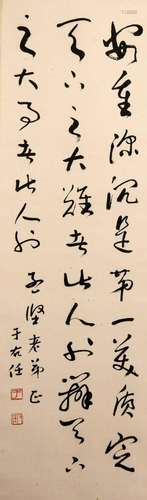 安重深沉是第一美質定
天下之大難者此人也辦天下
之大事者此人也 堅老弟正
于右任